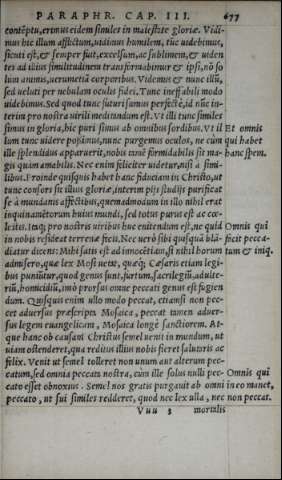 PARAPHR. CAP. III. 677
contẽptu, erimus eidem similes in maiestate gloriæ. Vidi-
mus hic illum afflictum, vidimus humilem, tūc uidebimus,
sicuti est, & semper fuit, excelsum, ac sublimem, & uiden
tes ad illius similitudinem transformabimur & ipsi, nō so
lum animis, uerumetiā corporibus. Videmus & nunc illū,
sed ueluti per nebulam oculis fidei. Tunc ineffabili modo
uidebimus. Sed quod tunc futuri sumus perfectè, id nūc in-
terim pro nostra uirili meditandum est. Vt illi tunc similes
simus in gloria, hic puri simus ab omnibus sordibus. Vt il Et omnis
lum tunc uidere possimus, nunc purgemus oculos, ne cùm qui habet
ille splendidus apparuerit, nobis tamẽ formidabilis sit ma- hanc spem.
gis quàm amabilis. Nec enim feliciter uidetur, nisi à simi-
libus. Proinde quisquis habet hanc fiduciam in Christo, ut
tunc consors sit illius gloriæ, interim pijs studijs purificat
se à mundanis affectibus, quemadmodum in illo nihil erat
inquinamẽtorum huius mundi, sed totus purus est ac cœ-
lestis. Itaq; pro nostris uiribus huc enitendum est, ne quid Omnis qui
in nobis resideat terrenæ fæcis. Nec uerò sibi quisquā blā- facit pecca-
diatur dicens: Mihi satis est ad innocẽtiam, si nihil horum tum & iniq.
admisero, quæ lex Mosi uetat, quæq; Cæsaris etiam legi-
bus puniūtur, quod genus sunt, furtum, sacrilegiū, adulte-
riū, homicidiū, imò prorsus omne peccati genus est fugien
dum. Quisquis enim ullo modo peccat, etiamsi non pec-
cet aduersus præscripta Mosaica, peccat tamen aduer-
sus legem euangelicam, Mosaica longè sanctiorem. At-
que hanc ob causam Christus semel uenit in mundum, ut
uiam ostenderet, qua reditus illius nobis fieret salutaris ac
felix. Venit ut semel tolleret non unum aut alterum pec-
catum, sed omnia peccata nostra, cùm ille solus nulli pec- Omnis qui
cato esset obnoxius. Semel nos gratis purgauit ab omni in eo manet,
peccato, ut sui similes redderet, quod nec lex ulla, nec non peccat.
Vuu 3 mortalis